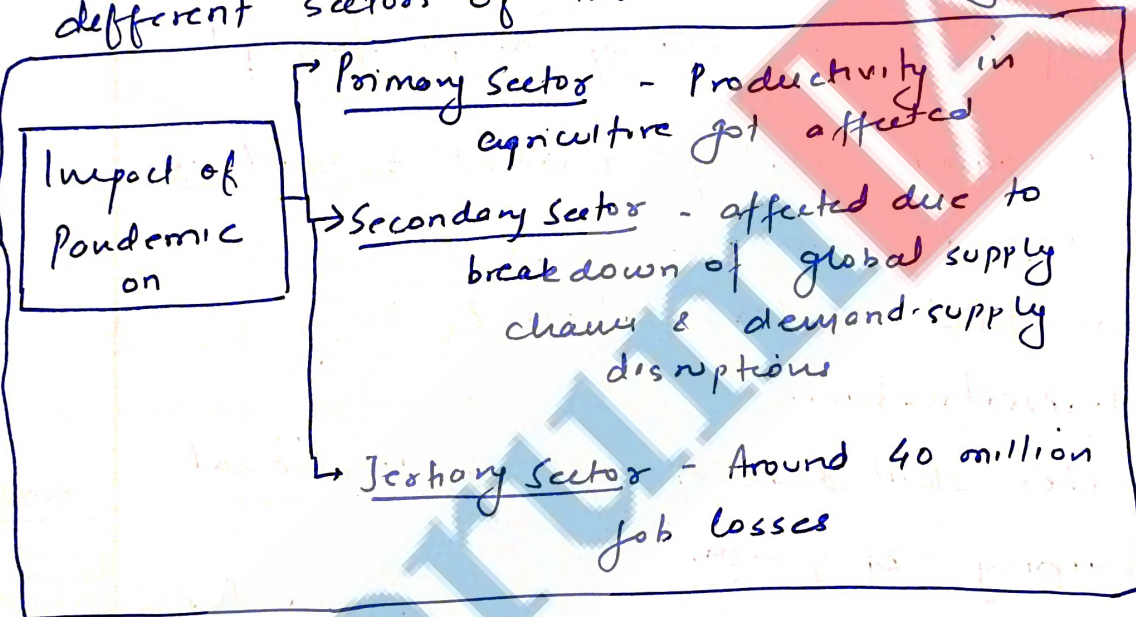 defferent sectors of
Impact of
Pandemic
on
Primary Sector - Productivity in
agriculture got affected
Secondary Sector - affected due to
breakdown of global supply
chains & demand-supply
disruptions
Tertiary Sector - Around 40 million
job losses
rum IA